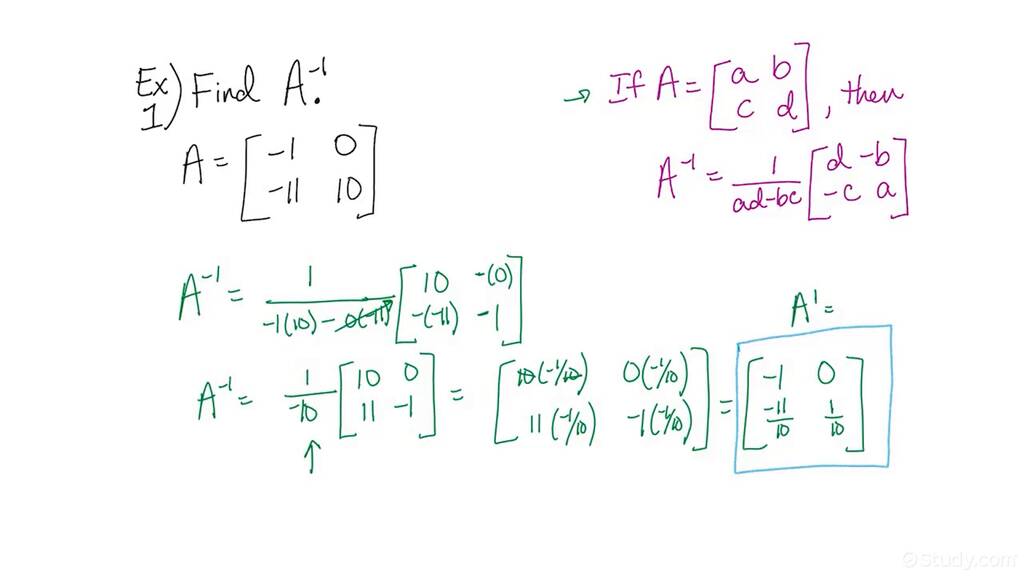 Ex 1) Find A⁻¹.
A = [-1 0; -11 10]
→ If A = [a b; c d], then
A⁻¹ = 1/(ad-bc) [d -b; -c a]
A⁻¹ = 1/(-1(10) - 0(-11)) [10 -(0); -(-11) -1]
A⁻¹ = 1/-10 [10 0; 11 -1] = [10(-1/10) 0(-1/10); 11(-1/10) -1(-1/10)] = [-1 0; -11/10 1/10]
↑
A¹ =
©Study.com